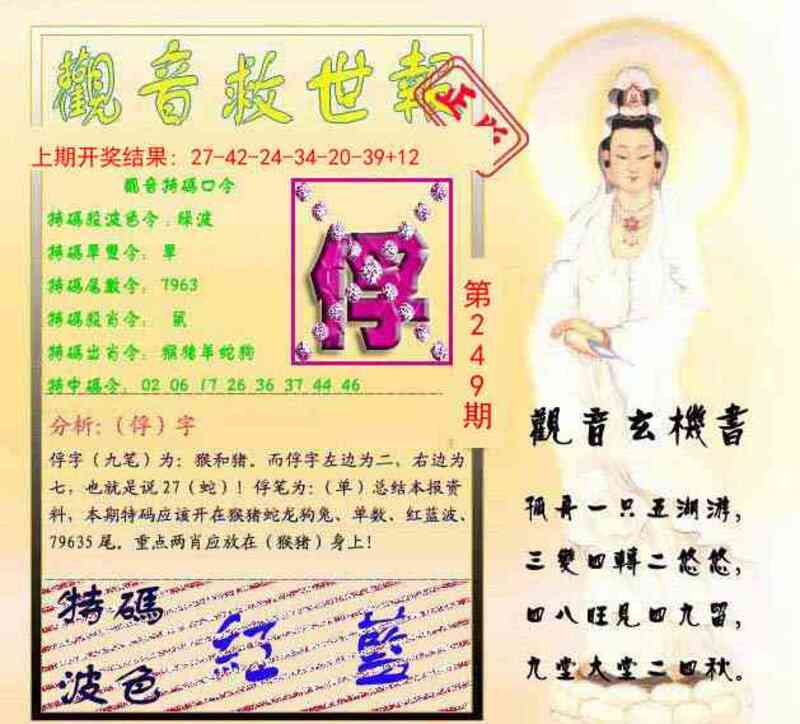 觀音救世報
正版
上期开奖结果：27-42-24-34-20-39+12
觀音特碼口令
特碼殺波色令：綠波
特碼單雙令：單
特碼尾數令：7963
特碼殺肖令：鼠
特碼出肖令：猴猪羊蛇狗
特中碼令：02 06 17 26 36 37 44 46
俘
第249期
分析：（俘）字
俘字（九笔）为：猴和猪。而俘字左边为二，右边为
七，也就是说27（蛇）！俘笔为：（单）总结本报资
料，本期特码应该开在猴猪蛇龙狗兔、单数、红蓝波、
79635尾。重点两肖应放在（猴猪）身上！
特碼
波色
紅 藍
觀音玄機書
孤舟一只五湖游，
三變四轉二悠悠，
四八旺見四九留，
九堂大堂二四秋。